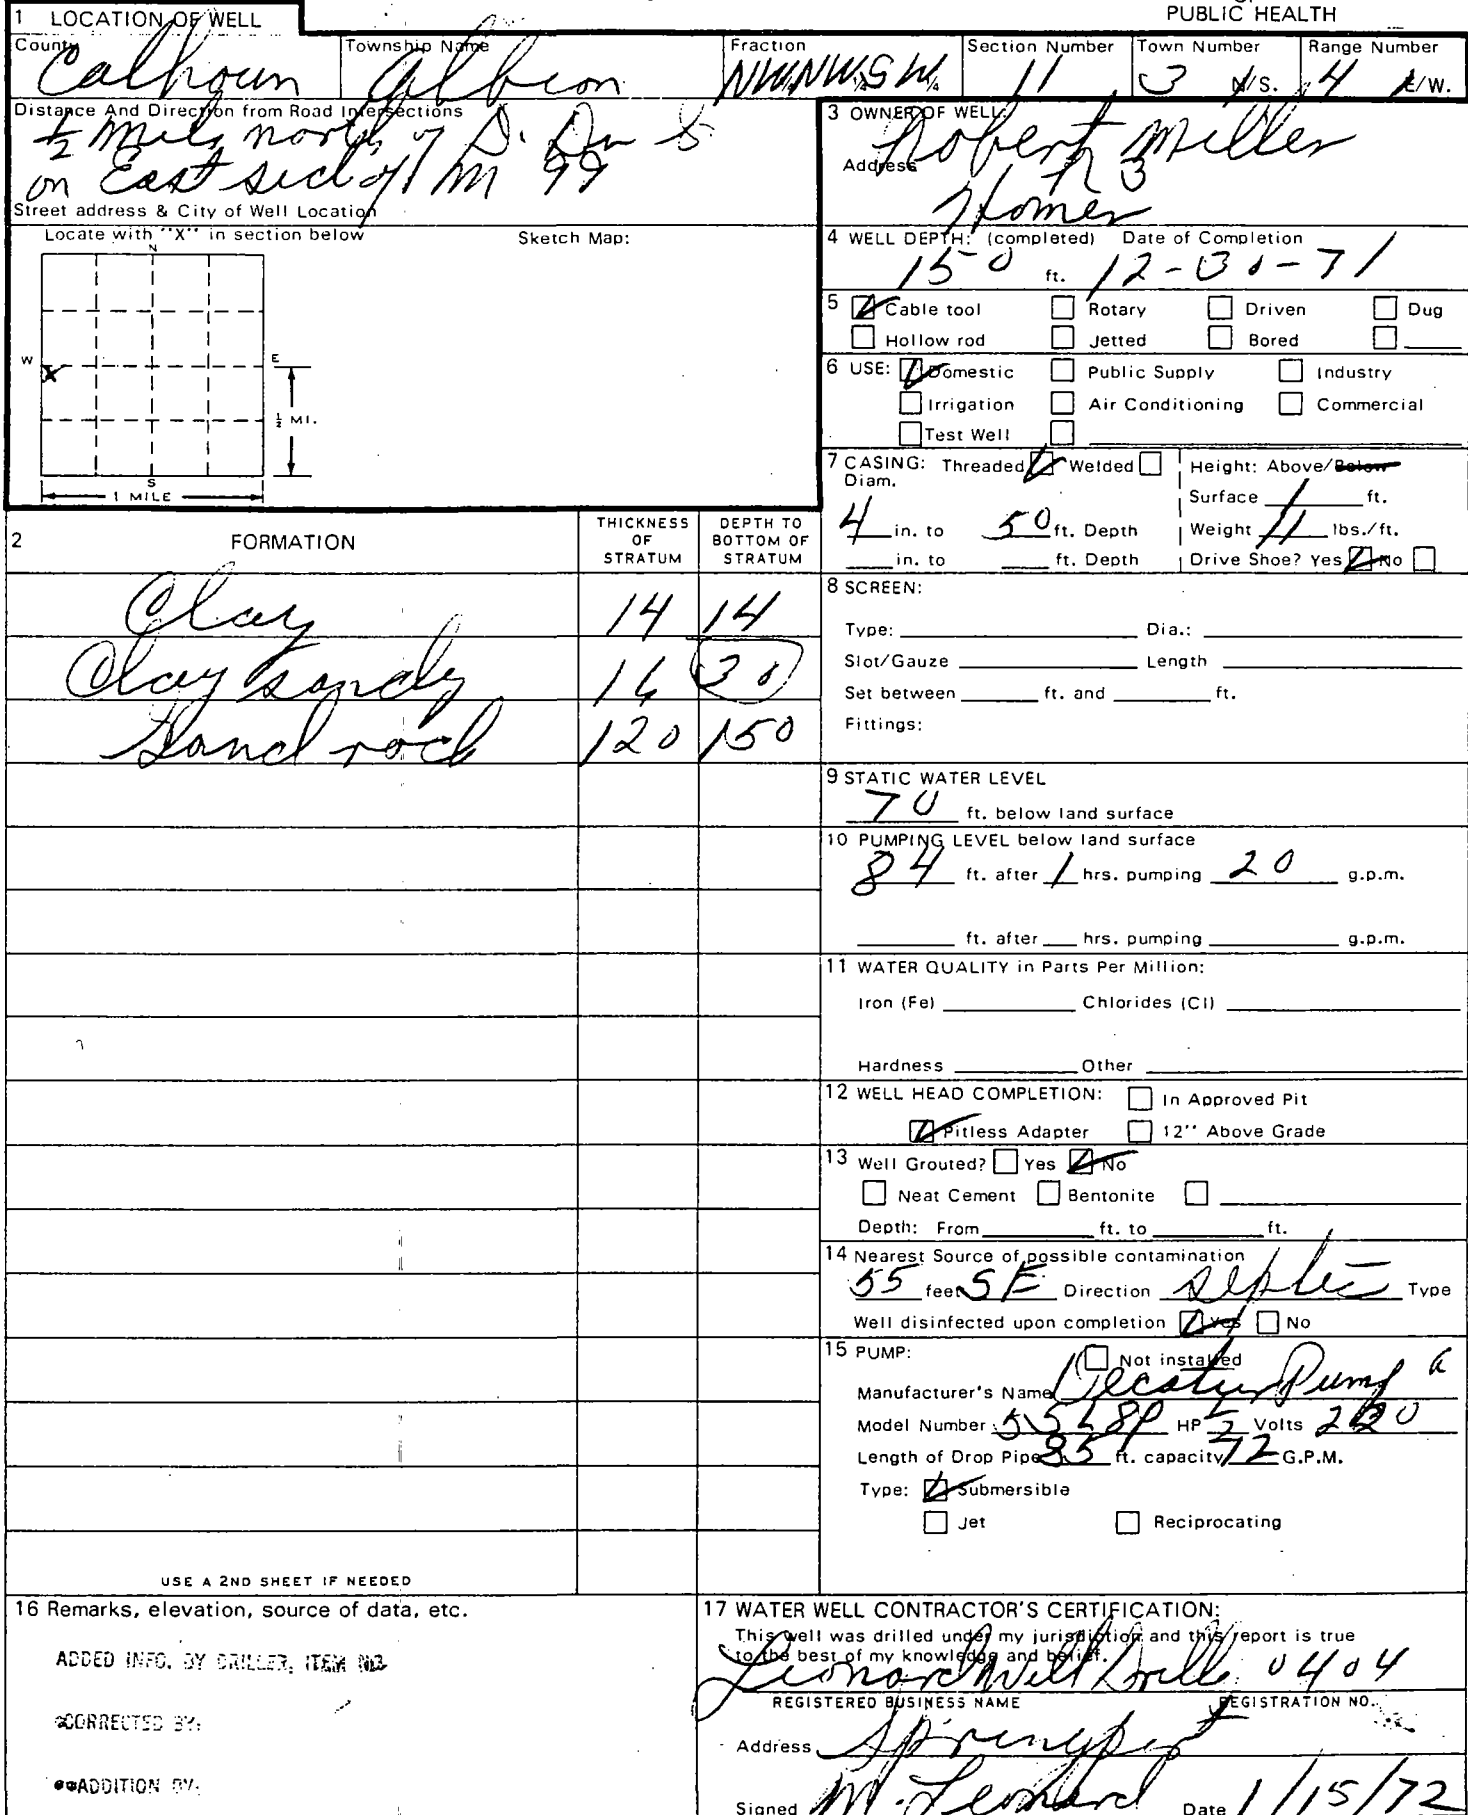 PUBLIC HEALTH
1 LOCATION OF WELL
County Calhoun Township Name Albion Fraction NW¼ NW¼ SW¼ Section Number 11 Town Number 3 N/S. Range Number 4 E/W.
Distance And Direction from Road Intersections
1/2 Mile north of D. Dr S
on East sid of M 99
Street address & City of Well Location
3 OWNER OF WELL: Robert Miller
Address R 3
Homer
Locate with "X" in section below Sketch Map:
N
W X E
½ MI.
S
1 MILE
4 WELL DEPTH: (completed) Date of Completion
150 ft. 12-30-71
5 Cable tool Rotary Driven Dug
Hollow rod Jetted Bored
6 USE: Domestic Public Supply Industry
Irrigation Air Conditioning Commercial
Test Well
7 CASING: Threaded Welded Height: Above/Below
Diam. Surface 1 ft.
4 in. to 50 ft. Depth Weight 11 lbs./ft.
in. to ft. Depth Drive Shoe? Yes No
2 FORMATION THICKNESS OF STRATUM DEPTH TO BOTTOM OF STRATUM
Clay 14 14
Clay sandy 16 30
Sand rock 120 150
USE A 2ND SHEET IF NEEDED
8 SCREEN:
Type: Dia.:
Slot/Gauze Length
Set between ft. and ft.
Fittings:
9 STATIC WATER LEVEL
70 ft. below land surface
10 PUMPING LEVEL below land surface
84 ft. after 1 hrs. pumping 20 g.p.m.
ft. after hrs. pumping g.p.m.
11 WATER QUALITY in Parts Per Million:
Iron (Fe) Chlorides (Cl)
Hardness Other
12 WELL HEAD COMPLETION: In Approved Pit
Pitless Adapter 12" Above Grade
13 Well Grouted? Yes No
Neat Cement Bentonite
Depth: From ft. to ft.
14 Nearest Source of possible contamination
55 feet SE Direction septic Type
Well disinfected upon completion Yes No
15 PUMP: Not installed
Manufacturer's Name Decatur Pump
Model Number HP 1/2 Volts
Length of Drop Pipe 85 ft. capacity 12 G.P.M.
Type: Submersible
Jet Reciprocating
16 Remarks, elevation, source of data, etc.
ADDED INFO. BY DRILLER, ITEM NO.
*CORRECTED BY:
**ADDITION BY:
17 WATER WELL CONTRACTOR'S CERTIFICATION:
This well was drilled under my jurisdiction and this report is true
to the best of my knowledge and belief.
Leonard Well Drille 0404
REGISTERED BUSINESS NAME REGISTRATION NO.
Address Springport
Signed M. Leonard Date 1/15/72